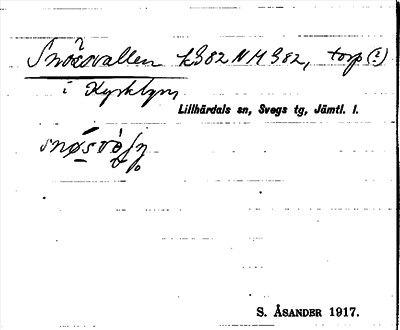 Snösvallen k382 NH382, torp (?)
i Kyrkbyn
Lillhärdals sn, Svegs tg, Jämtl. l.
S. ÅSANDER 1917.